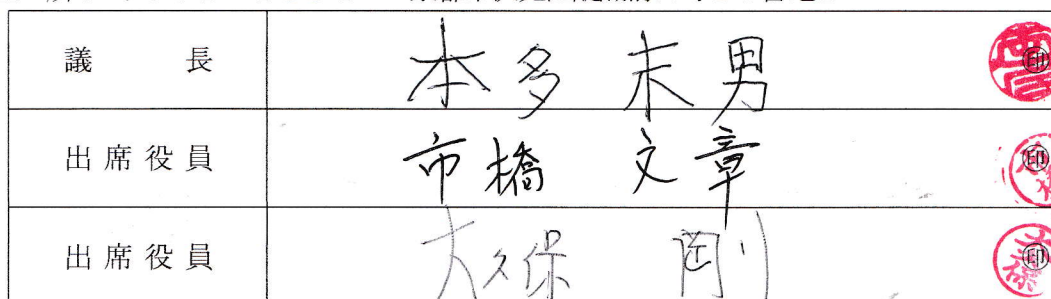 議長 本多 末男 ㊞
出席役員 市橋 文章 ㊞
出席役員 大久保 剛 ㊞